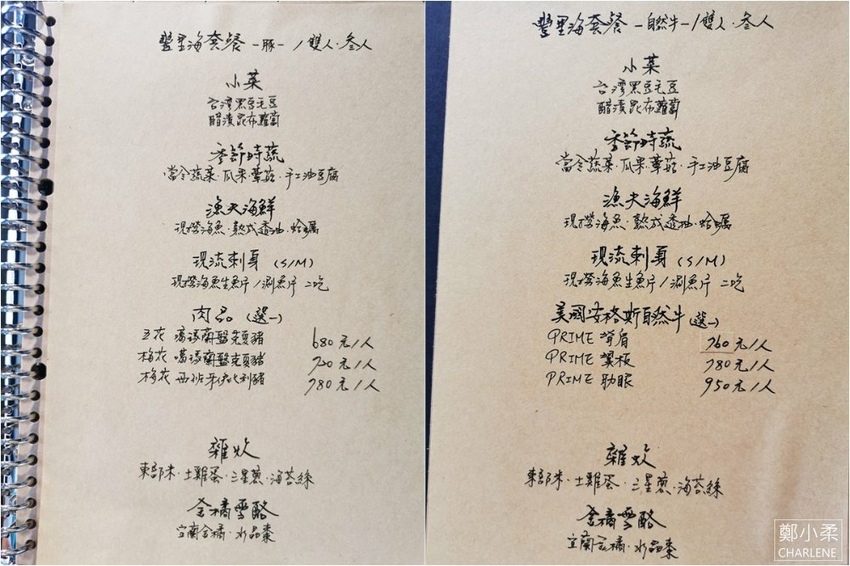 豐里海套餐 -豚- / 雙人·叁人
小菜
台灣黑豆毛豆
醋漬昆布蘿蔔
季節時蔬
當令蔬菜·瓜果·蕈菇·手工油豆腐
漁夫海鮮
現撈海魚·熟成透抽·蛤蠣
現流刺身 (S/M)
現撈海魚生魚片/涮魚片 二吃
肉品 (選一)
五花 噶瑪蘭黑豚豬 680元/人
梅花 噶瑪蘭黑豚豬 720元/人
梅花 西班牙伊比利豬 780元/人
雜炊
東部米·土雞蛋·三星蔥·海苔絲
金橘雪酪
宜蘭金橘·水晶棗
豐里海套餐 -自然牛- / 雙人·叁人
小菜
台灣黑豆毛豆
醋漬昆布蘿蔔
季節時蔬
當令蔬菜·瓜果·蕈菇·手工油豆腐
漁夫海鮮
現撈海魚·熟成透抽·蛤蠣
現流刺身 (S/M)
現撈海魚生魚片/涮魚片 二吃
美國安格斯自然牛 (選一)
PRIME 背肩 760元/人
PRIME 翼板 780元/人
PRIME 肋眼 950元/人
雜炊
東部米·土雞蛋·三星蔥·海苔絲
金橘雪酪
宜蘭金橘·水晶棗
鄭小柔
CHARLENE